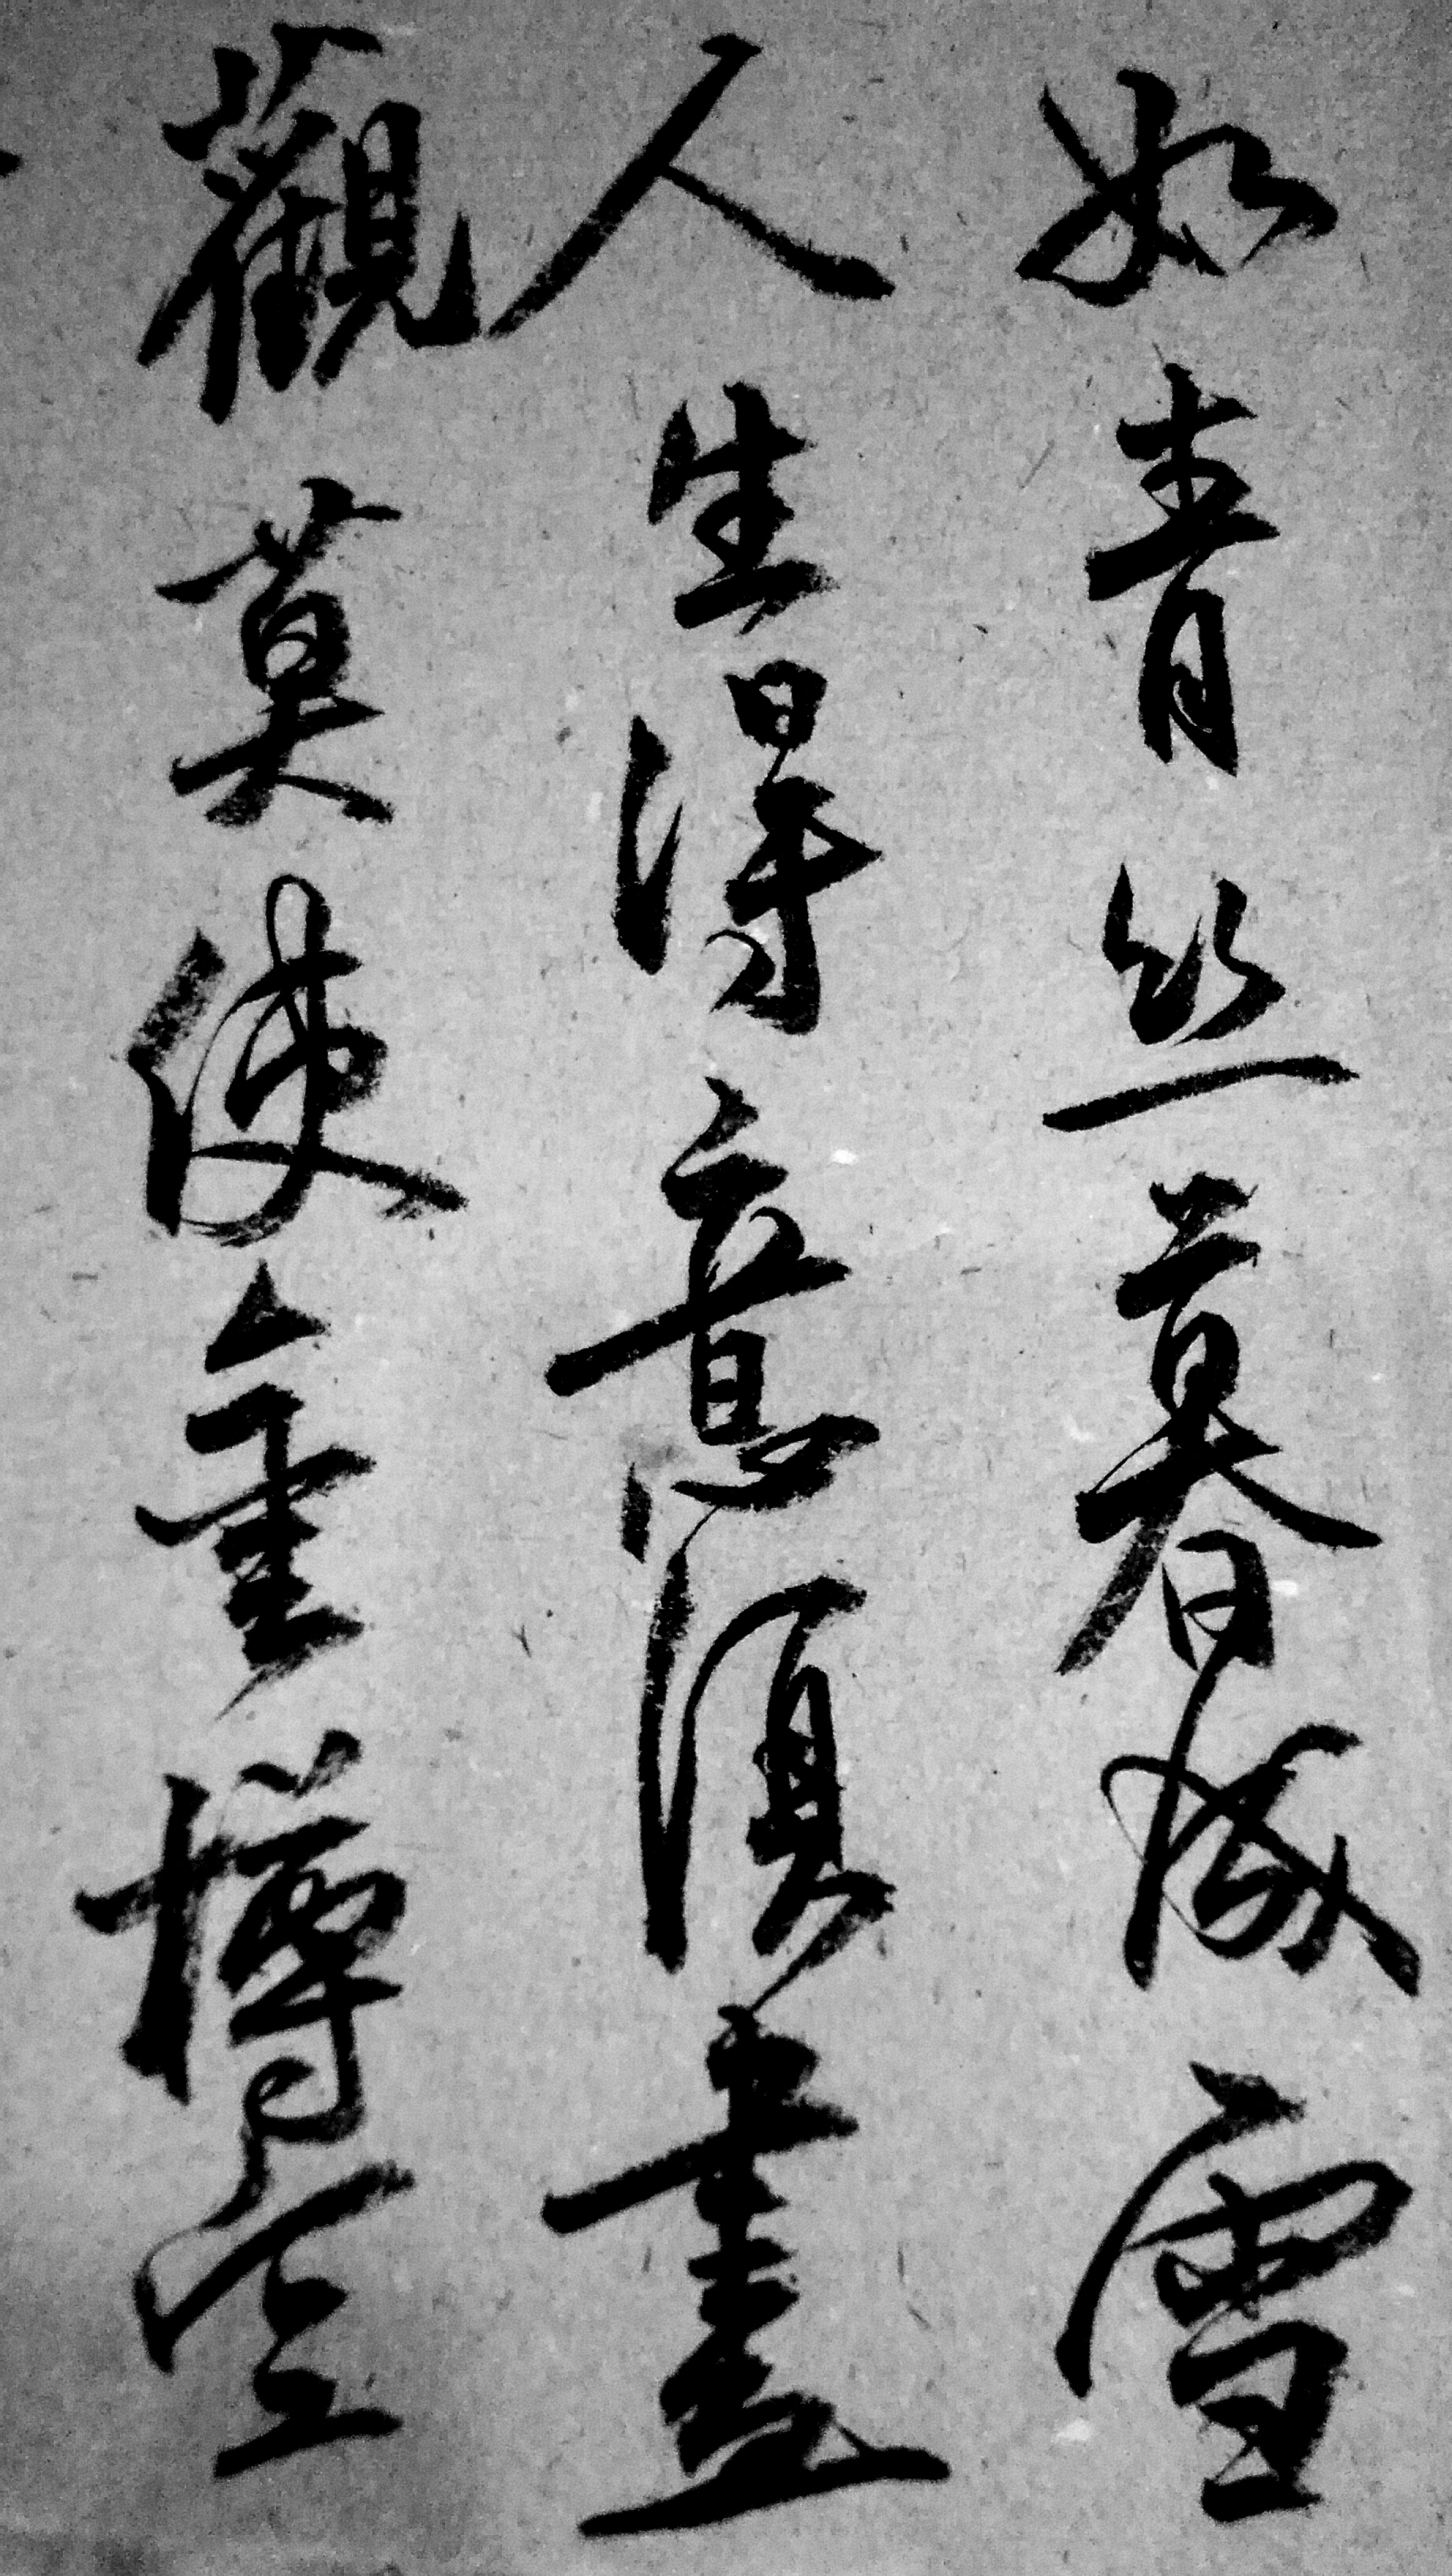 如青丝暮成雪
人生得意須盡
觀莫使金樽空